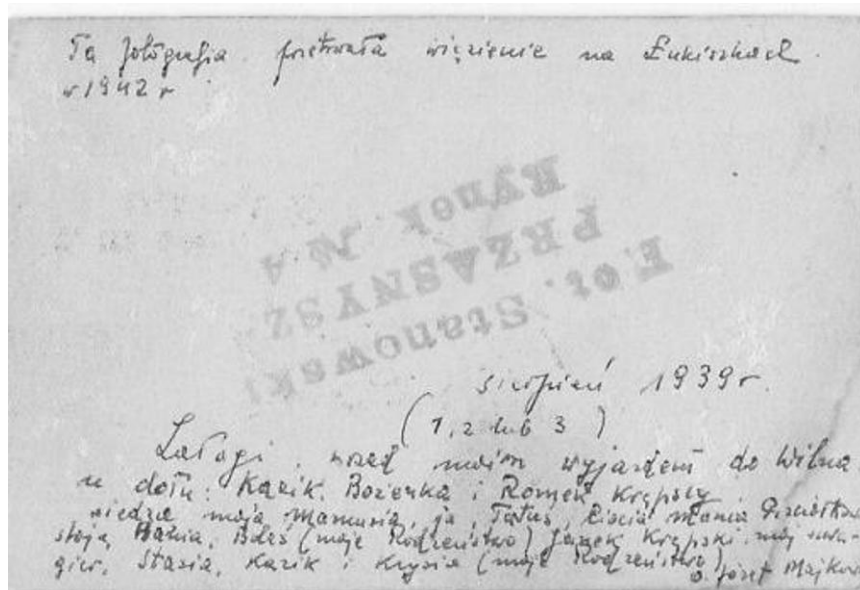 Ta fotografia przetrwała więzienie na Łukiszkach
w 1942 r
Rynek № 4
PRZASNYSZ
Fot. Stanowski
sierpień 1939 r.
(1, 2 lub 3)
Łałagi, przed moim wyjazdem do Wilna
u dołu: Kazik, Bożenka i Romek Krępscy
siedzą moja Mamusia, ja, Tatuś, Ciocia Mania
stoją Hania, Boleś (moje Rodzeństwo) Janek Krępski mój szwa-
gier, Stasia, Kazik i Krysia (moje Rodzeństwo)
o. Józef